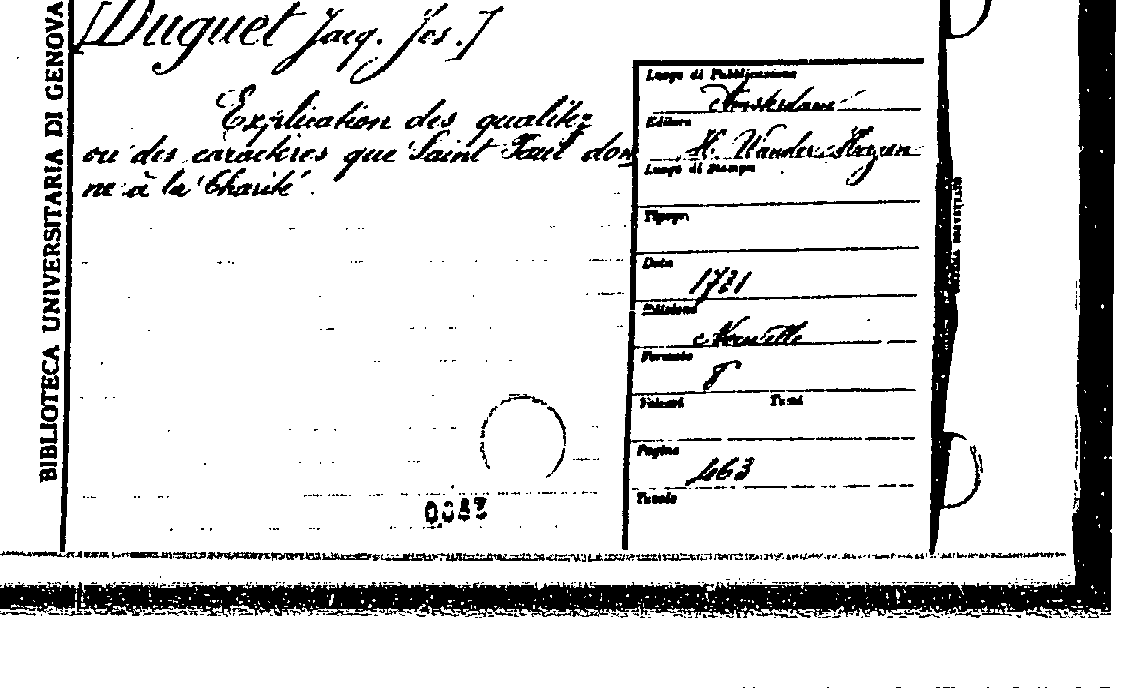 BIBLIOTECA UNIVERSITARIA DI GENOVA
[Duguet Jacq. Jos.]
Explication des qualitez
ou des caractères que Saint Paul don
ne à la Charité.
Luogo di Pubblicazione
Amsterdam
Editore
H. Vander
Luogo di Stampa
Tipogr.
Data
1721
Edizione
Nouvelle
Formato
8
Volumi Tomi
Pagine
463
Tavole